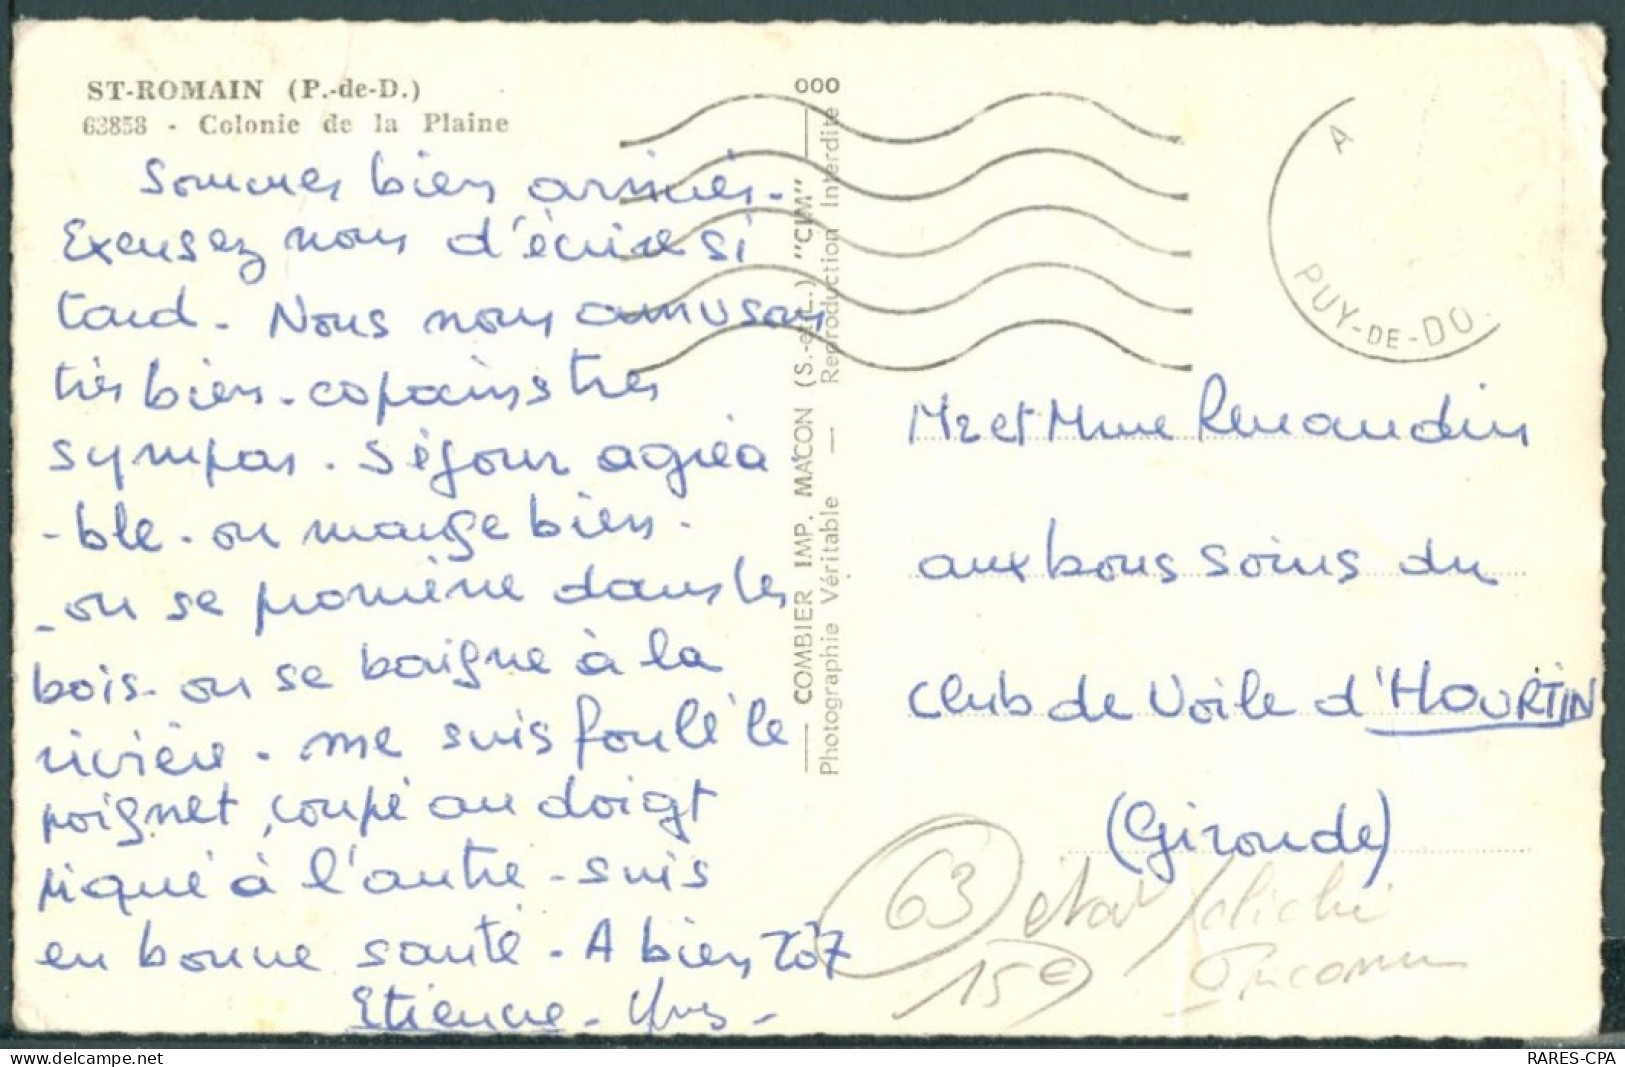 ST-ROMAIN (P.-de-D.)
63858 - Colonie de la Plaine
Sommes bien arrivés.
Excusez nous d'écrire si
tard. Nous nous amusons
très bien. copains très
sympas. Séjour agréa
-ble. on mange bien.
_on se promène dans les
bois. on se baigne à la
rivière. me suis foulé le
poignet, coupé au doigt
piqué à l'autre. suis
en bonne santé. A bientôt
Etienne. Yves.
000
COMBIER IMP. MACON (S.-et-L.) "CIM"
Photographie Véritable — Reproduction Interdite
A
PUY-DE-DO
Mr et Mme Renaudin
aux bons soins du
Club de Voile d'HOURTIN
(Gironde)
63 état / cliché
15€ Inconnu
RARES-CPA
https://www.delcampe.net